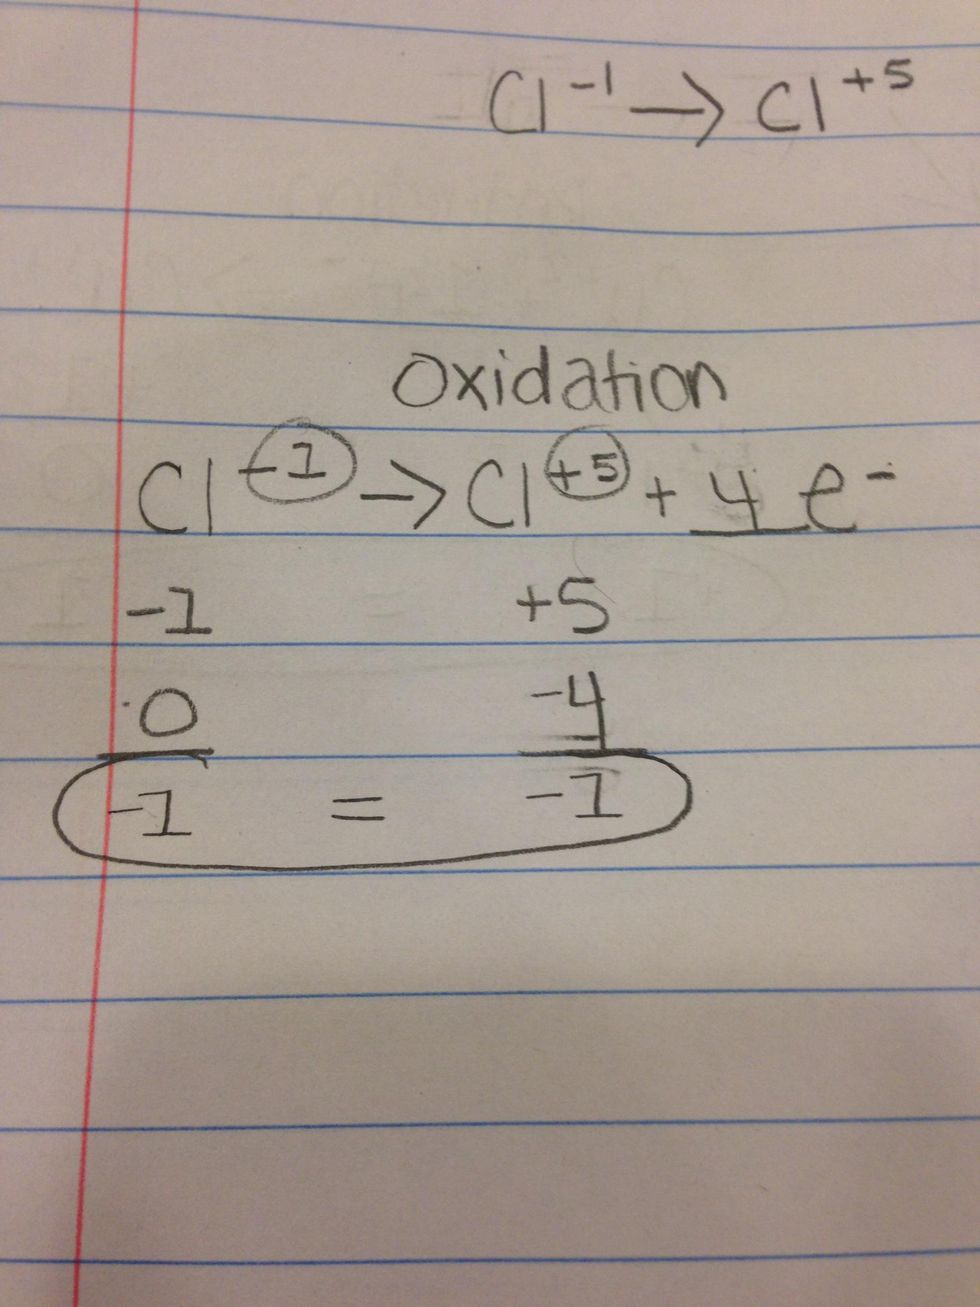 Cl⁻¹ → Cl⁺⁵
Oxidation
Cl⁻¹ → Cl⁺⁵ + 4 e⁻
-1 +5
0 -4
-1 = -1